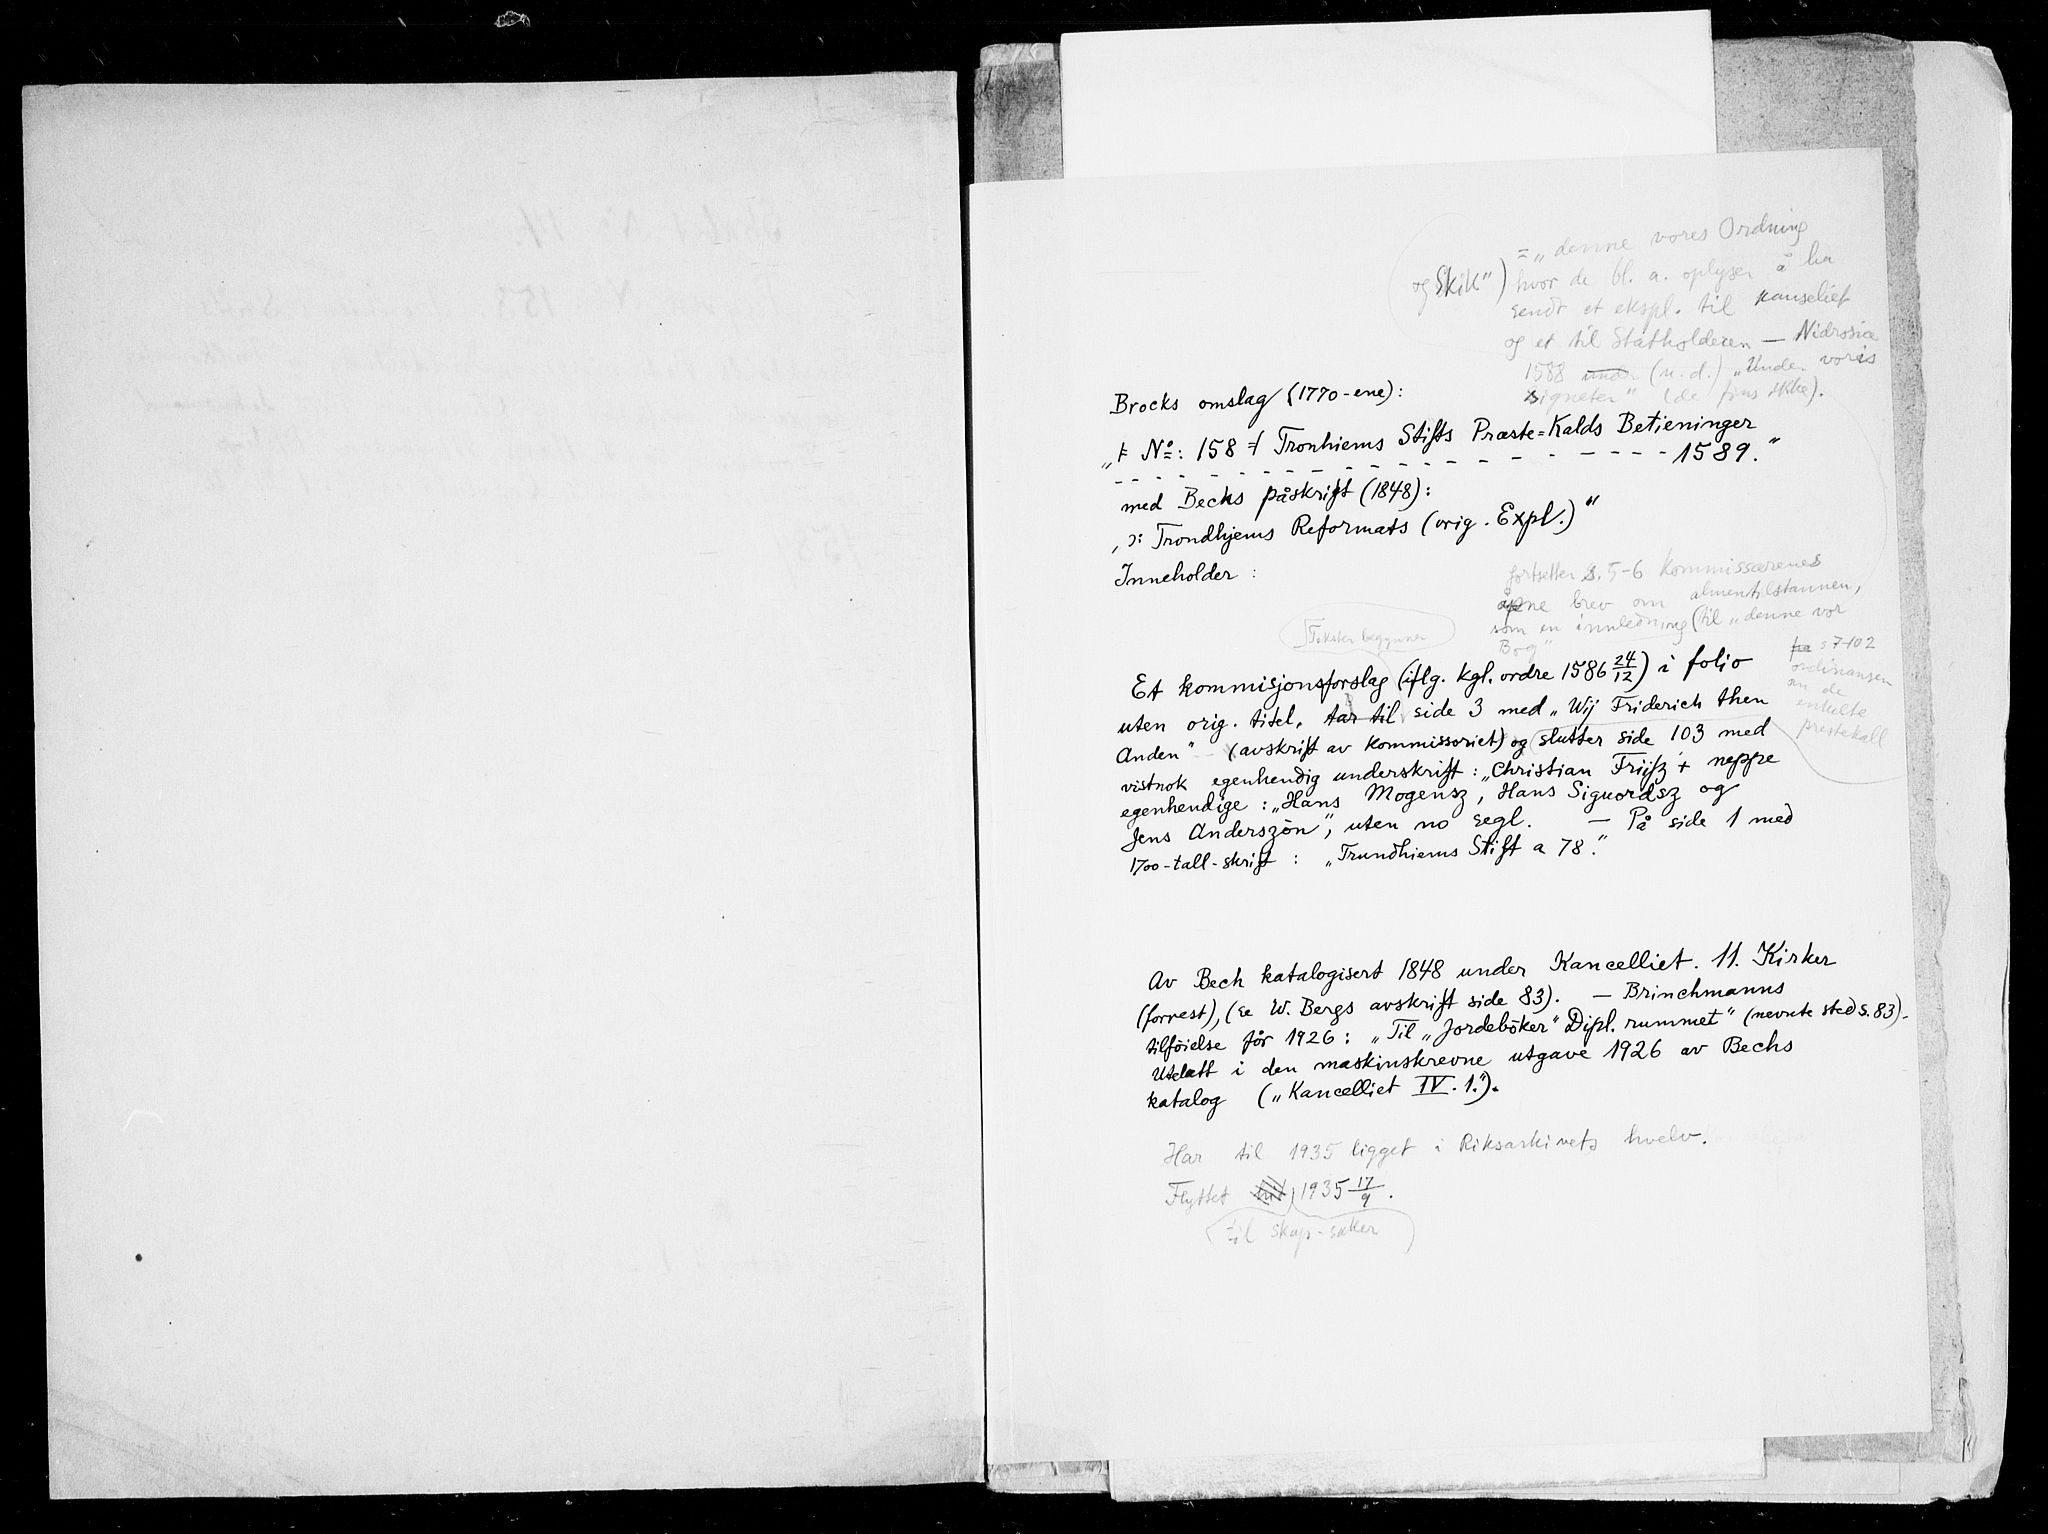 = „denne vores Ordning
og Skik") hvor de bl. a. oplyser å ha
sendt et ekspl. til kanseliet
og et til Statholderen — Nidrosiæ
1588 under (u. d.) „Under voris
signeter" (de fins ikke).
Brocks omslag (1770-ene):
„ No: 158 Tronhiems Stifts Præste=Kalds Betieninger
- - - - - - - - - - - - - - - - - - 1589."
med Bechs påskrift (1848):
„ɔ: Trondhjems Reformats (orig. Expl.)"
Inneholder :
fortsetter s. 5-6 kommissærenes
åpne brev om almentilstannen,
som en innledning (til „denne vor
Bog"
Teksten begynner
fra s 7-102
ordinansen
om de
enkelte
prestekall
Et kommisjonsforslag (iflg. kgl. ordre 1586 24/12) i folio
uten orig. titel, tar til side 3 med „Wij Friderich then
Anden" (avskrift av kommissoriet) og slutter side 103 med
vistnok egenhendig underskrift : „Christian Frijsz + neppe
egenhendige : „Hans Mogensz, Hans Siguordsz og
Jens Anderszön", uten no segl. — På side 1 med
1700-tall-skrift : „Trundhiems Stift a 78."
Av Bech katalogisert 1848 under Kancelliet. 11. Kirker
(forrest), (se W. Bergs avskrift side 83). — Brinchmanns
tilföielse för 1926 : „Til „Jordeböker" Dipl. rummet" (nevnte sted s. 83).
Utelatt i den maskinskrevne utgave 1926 av Bechs
katalog („Kancelliet IV. 1.").
Har til 1935 ligget i Riksarkivets hvelv.
Flyttet hit 1935 17/9.
til skap-saker